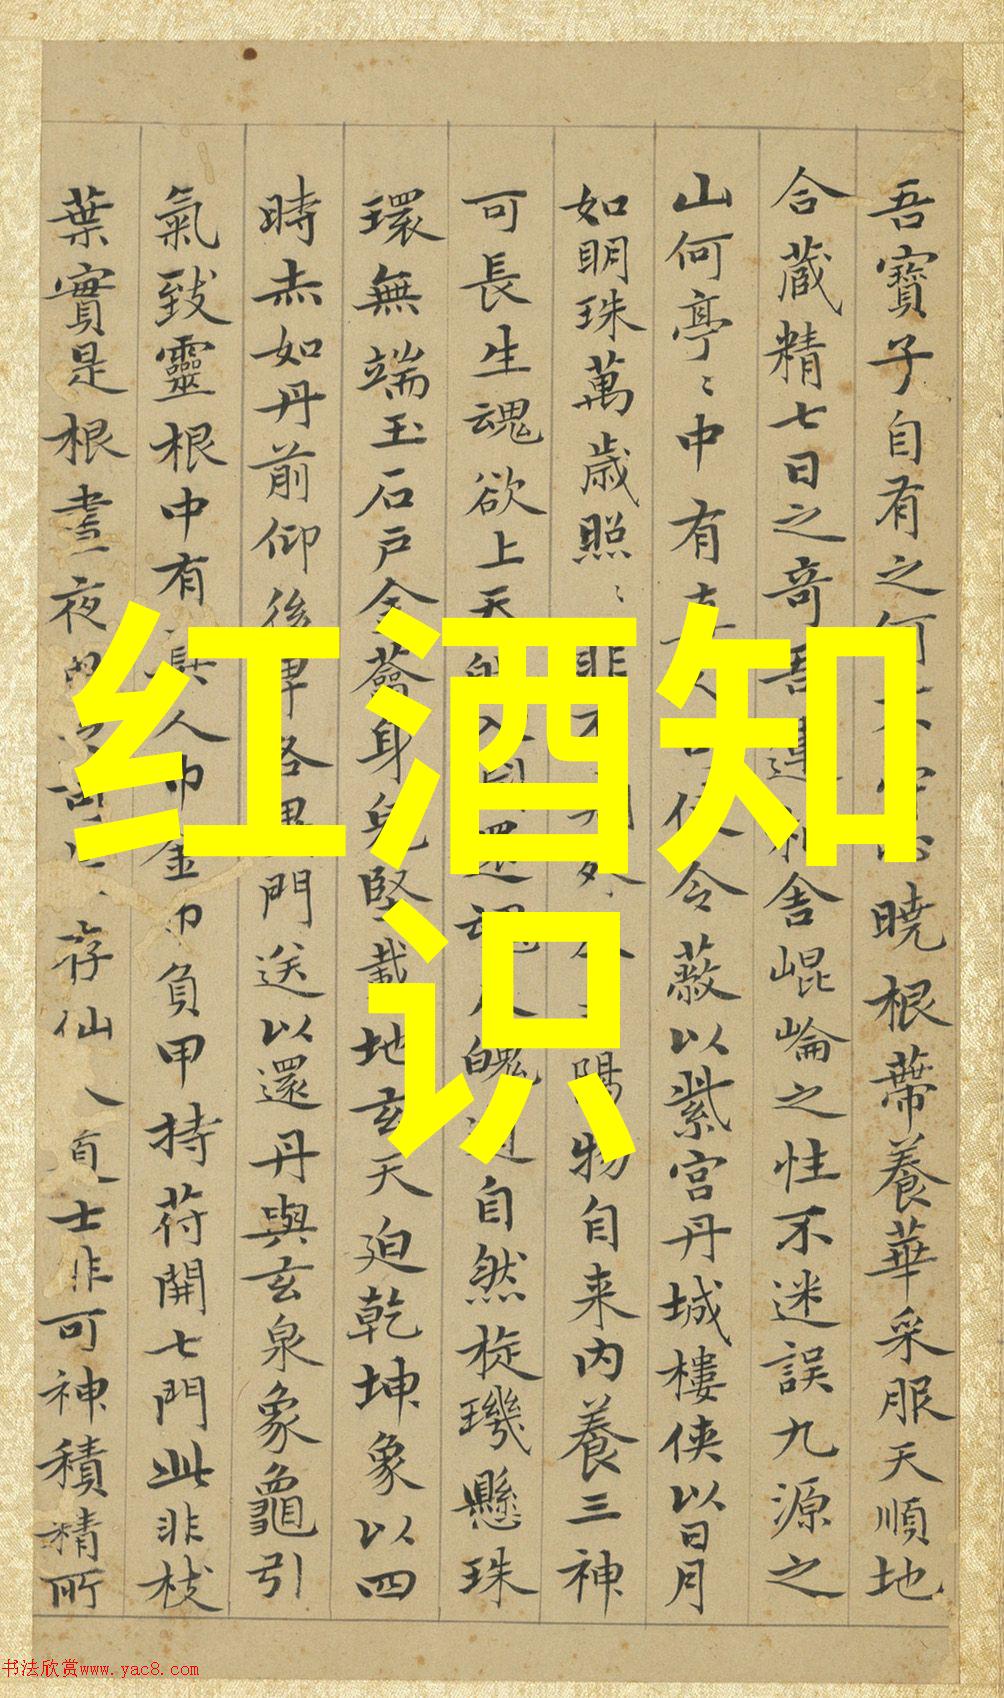 红酒知
识
吾寶子自有之何不曉根蔕養華采服天順地
合藏精七日之奇吾舍崐崘之性不迷誤九源之
山何亭〻中有人使令蔽以紫宫丹城樓俠以日月
如明珠萬歳照〻非陽物自来内養三神
可長生魂欲上天入還魄道自然旋璣懸珠
環無端玉石戶金籥身皃堅載地玄天迫乾坤象以四
時赤如丹前仰後卑各門送以還丹與玄泉象龜引
氣致靈根中有真人巾金巾負甲持苻開七門此非枝
葉實是根晝夜存仙士非可神積精所
书法欣赏www.yac8.com